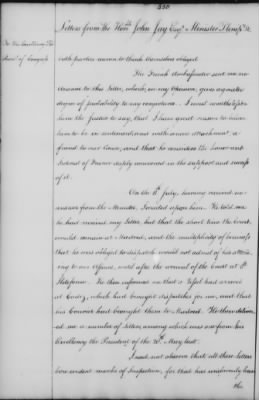 350
Letters from the Honble John Jay Esqr Minister Plenipo &c
To His Excellency The
Presidt of Congress
with parties averse to think themselves obliged
The French Ambassador sent me no
answer to this letter, which, in my Opinion, gives a greater
degree of probability to my conjecture. I must nevertheless
him the justice to say, that I have good reason to think
him to be in sentiment and with sincere attachment a
friend to our Cause; and that he considers the honor and
Interest of France deeply concerned in the support and success
of it.
On the 11th July, having received no
answer from the Minister, I waited upon him. He told me
he had received my Letter, but that the short time the Court
would remain at Madrid, and the multiplicity of business
that he was obliged to dispatch would not admit of his attend-
ing to our affairs, until after the arrival of the Court at St
Ildefonso. He then informed me that a Vessel had arrived
at Cadiz, which had brought dispatches for me, and that
his Courier had brought them to Madrid. He then deliver-
ed me a number of letters, among which was one from his
Excellency the President of the 28th May last.
I need not observe that all these letters
bore evident marks of Inspection, for that has uniformly been
the